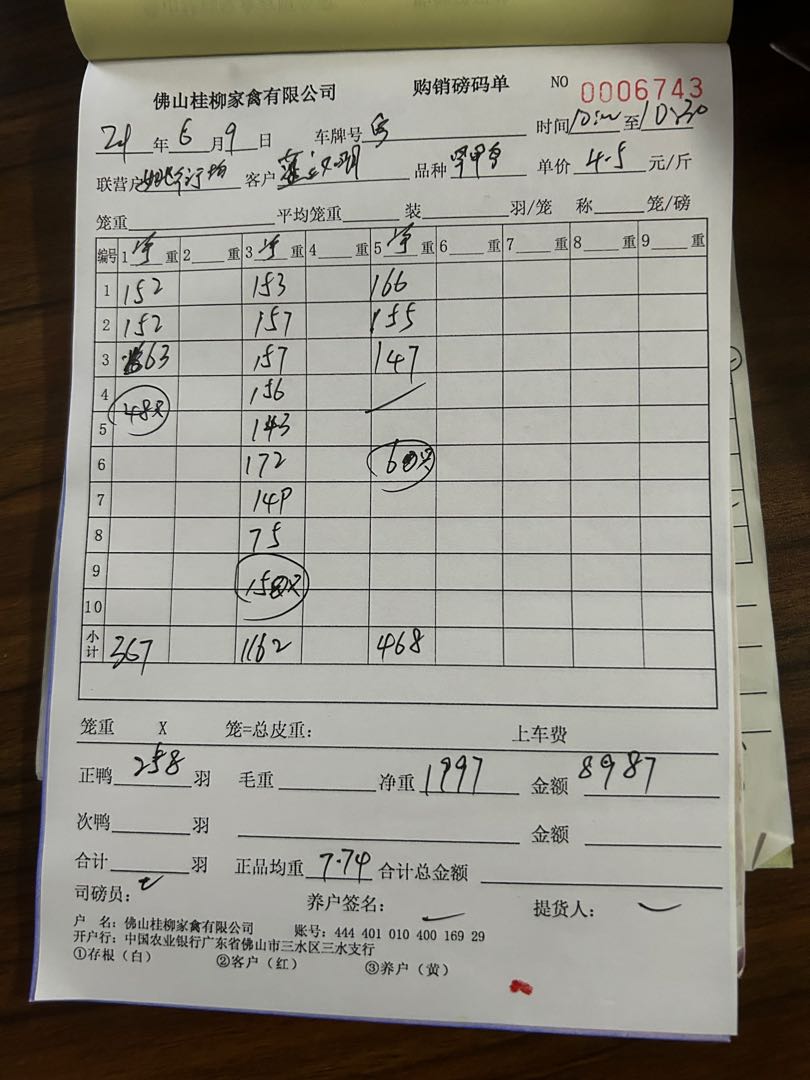 佛山桂柳家禽有限公司 购销磅码单 NO 0006743
24 年 6 月 9 日 车牌号 时间 至 10:30
联营户 客户 品种 单价 4.5 元/斤
笼重 平均笼重 装 羽/笼 称 笼/磅
编号 1 净 重 2 重 3 净 重 4 重 5 净 重 6 重 7 重 8 重 9 重
1 152 153 166
2 152 157 155
3 63 157 147
4 156
48只
5 143
6 172 60只
7 149
8 75
9 150只
10
小计 367 1162 468
笼重 X 笼=总皮重: 上车费
正鸭 258 羽 毛重 净重 1997 金额 8987
次鸭 羽 金额
合计 羽 正品均重 7.74 合计总金额
司磅员: 养户签名: 提货人:
户 名: 佛山桂柳家禽有限公司 账号: 444 401 010 400 169 29
开户行: 中国农业银行广东省佛山市三水区三水支行
①存根（白） ②客户（红） ③养户（黄）